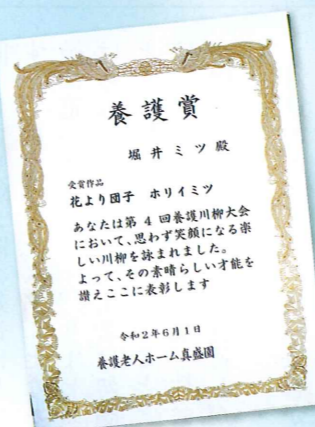 養護賞
堀井ミツ殿
受賞作品
花より団子 ホリイミツ
あなたは第4回養護川柳大会
において、思わず笑顔になる楽
しい川柳を詠まれました。
よって、その素晴らしい才能を
讃えここに表彰します
令和2年6月1日
養護老人ホーム真盛園